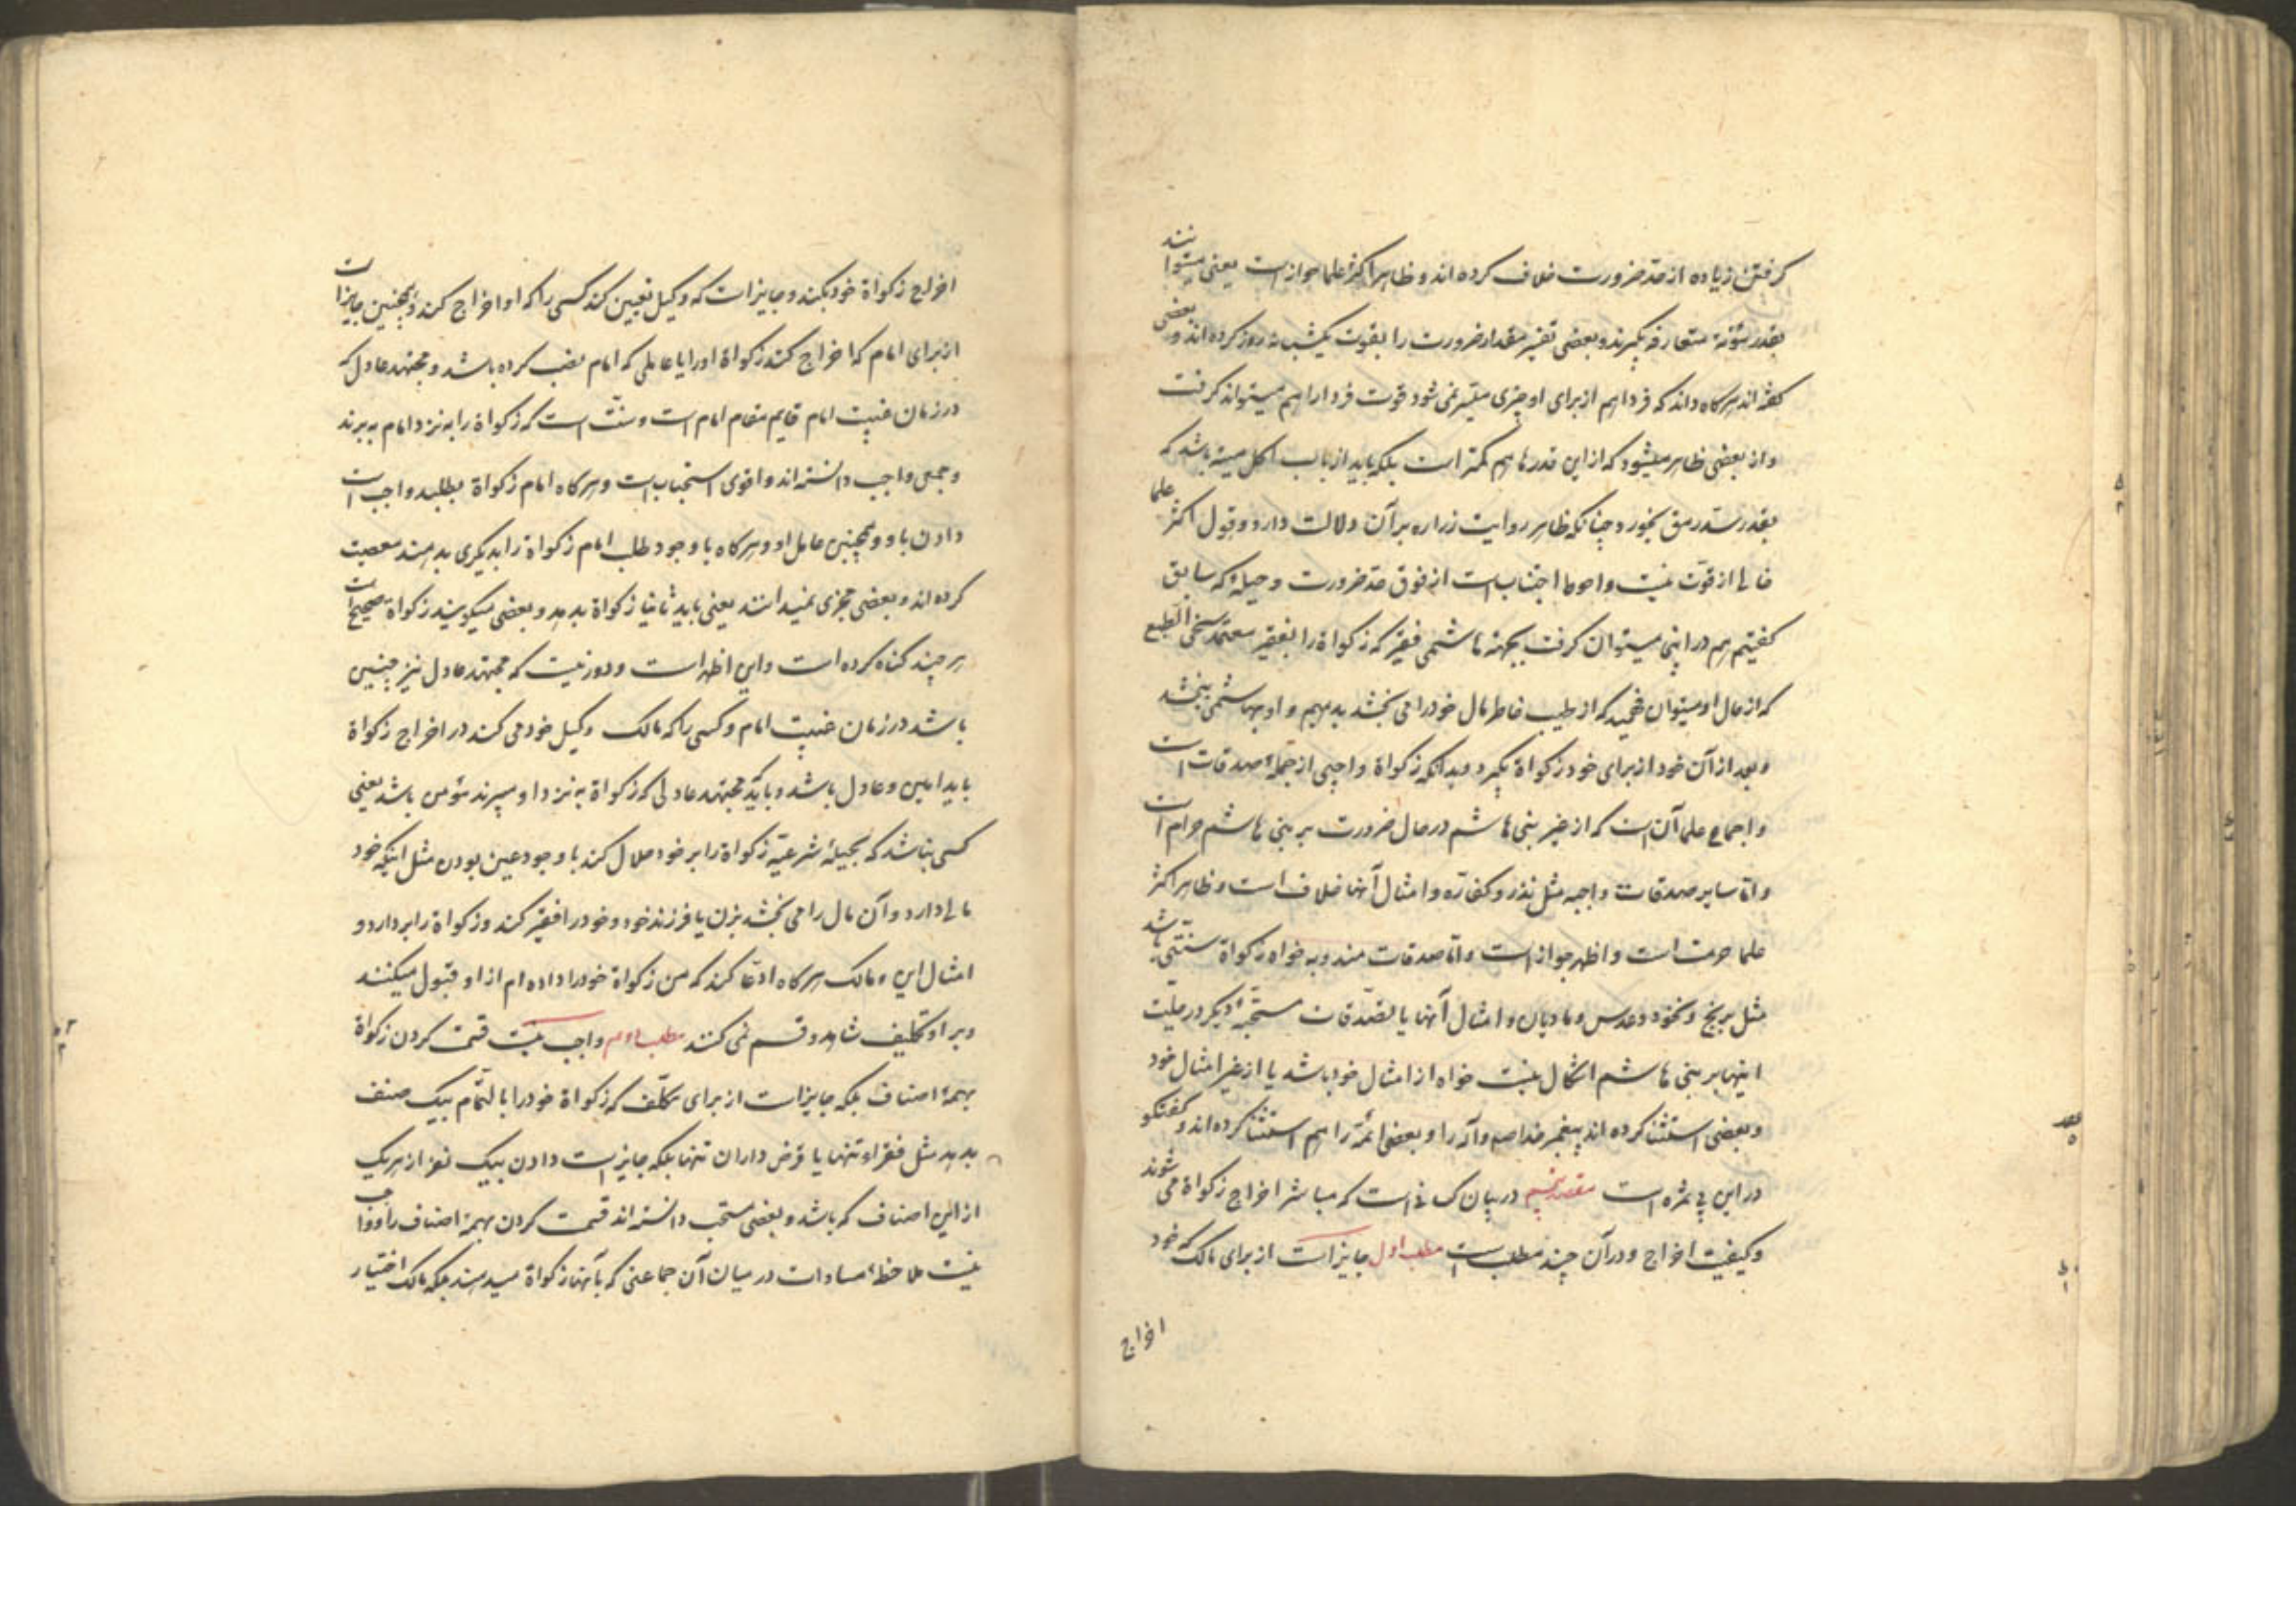 گرفتن زیاده از حد ضرورت خلاف کرده اند و ظاهرا اکثر علما جواز است یعنی میتوانند
بقدر مؤنهٔ متعارفه بگیرند و بعضی تفسیر مقدار ضرورت را بقوت یکشبانه روز کرده اند و بعضی
گفته اند هرگاه داند که فردا هم از برای او چیزی میسر نمی شود قوت فردا را هم میتواند گرفت
و از بعضی ظاهر میشود که از این قدرها هم کمتر است بلکه باید از باب اکل میته باشد که
بقدر سد رمق بخورد چنانکه ظاهر روایت زراره بر آن دلالت دارد و قول اکثر علما
خالی از قوت نیست و احوط اجتناب است از فوق حد ضرورت و حیلهٔ که سابق
گفتیم هم در اینجا میتوان گرفت بجهة هاشمی فقیر که زکواة را بفقیر معتمد سخی الطبع
که از حال او میتوان فهمید که از طیب خاطر مال خود را می بخشد بدهیم و او بهاشمی ببخشد
و بعد از آن خود از برای خود زکواة بگیرد و بدانکه زکواة واجبی از جملهٔ صدقات است
و اجماع علما آن است که از غیر بنی هاشم در حال ضرورت بر بنی هاشم حرام است
و اما سایر صدقات واجبه مثل نذر و کفاره و امثال آنها خلاف است و ظاهر اکثر
علما حرمت است و اظهر جواز است و اما صدقات مندوبه خواه زکواة سنتی باشد
مثل برنج و نخود و عدس و مادیان و امثال آنها یا تصدقات مستحبهٔ دیگر در حلیت
اینها بر بنی هاشم اشکال نیست خواه از امثال خود باشد یا از غیر امثال خود
و بعضی استثنا کرده اند پیغمبر خدا صم و آله را و بعضی ائمه را هم استثنا کرده اند و گفتگو
در این بی ثمره است مقصد پنجم در بیان کسانی است که مباشر اخراج زکواة می شوند
و کیفیت اخراج و در آن چند مطلب است مطلب اول جایز است از برای مالک که خود
اخراج
اخراج زکواة خود بکند و جایز است که وکیل تعیین کند کسی را که او اخراج کند و همچنین جایز است
از برای امام که اخراج کند زکواة او را یا عاملی که امام نصب کرده باشد و مجتهد عادل که
در زمان غیبت امام قایم مقام امام است و سنت است که زکواة را به نزد امام به برند
و جمعی واجب دانسته اند و اقوی استحباب است و هرگاه امام زکواة بطلبد واجب است
دادن باو و همچنین عامل او و هرگاه با وجود طلب امام زکواة را بدیگری بدهند معصیت
کرده اند و بعضی مجزی نمیدانند یعنی باید ثانیا زکواة بدهد و بعضی میگویند زکواة صحیح است
هر چند گناه کرده است و این اظهر است و دور نیست که مجتهد عادل نیز چنین
باشد در زمان غیبت امام و کسی را که مالک وکیل خود می کند در اخراج زکواة
باید امین و عادل باشد و باید مجتهد عادلی که زکواة به نزد او میبرند مؤمن باشد یعنی
کسی نباشد که بحیلهٔ شرعیه زکواة را بر خود حلال کند با وجود عین بودن مثل اینکه خود
مالی دارد و آن مال را می بخشد بزن یا فرزند خود و خود را فقیر کند و زکواة را بردارد و
امثال این و مالک هرگاه ادعا کند که من زکواة خود را داده ام از او قبول میکنند
و بر او تکلیف شاهد و قسم نمی کنند مطلب دوم واجب نیست قسمت کردن زکواة
بهمهٔ اصناف بلکه جایز است از برای مکلف که زکواة خود را بالتمام بیک صنف
بدهد مثل فقراء تنها یا قرض داران تنها بلکه جایز است دادن بیک نفر از هر یک
از این اصناف که باشد و بعضی مستحب دانسته اند قسمت کردن بهمهٔ اصناف را و واجب
نیست ملاحظهٔ مساوات در میان آن جماعتی که بآنها زکواة میدهند بلکه مالک اختیار